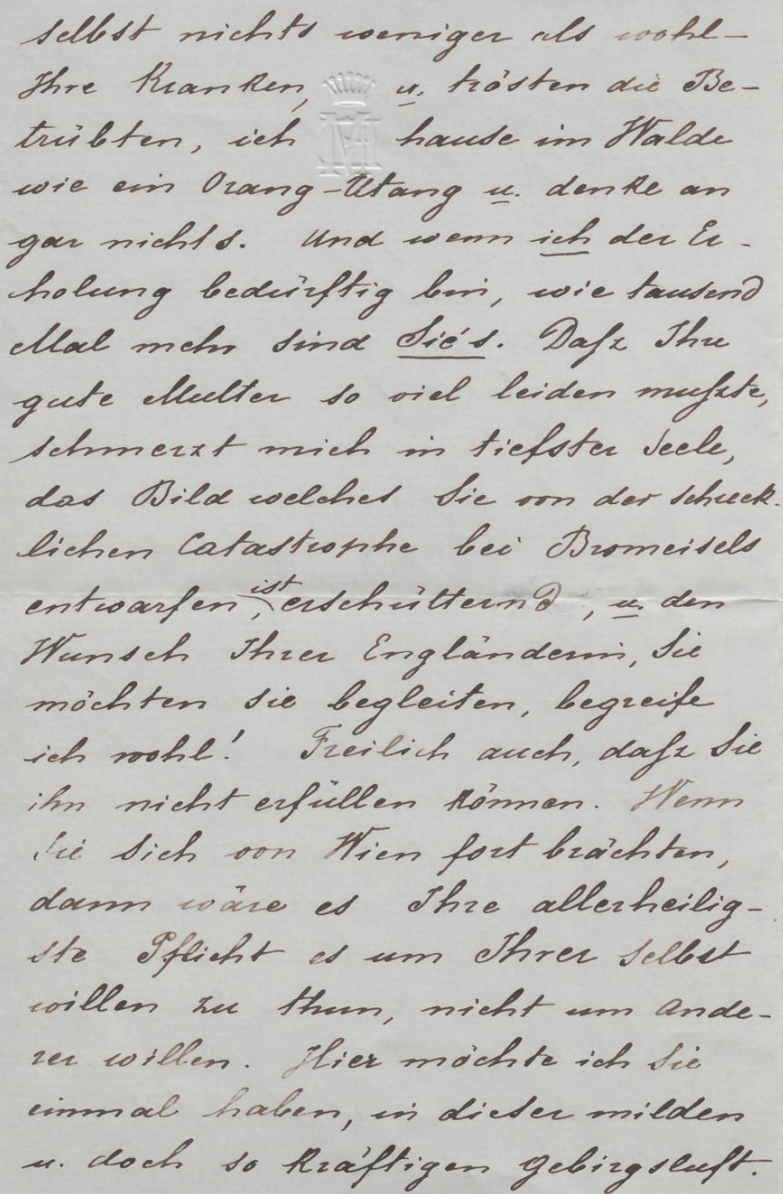 selbst nichts weniger als wohl –
Ihre Kranken, u. trösten die Be-
trübten, ich hause im Walde
wie ein Orang-Utang u. denke an
gar nichts. Und wenn ich der Er-
holung bedürftig bin, wie tausend
Mal mehr sind Sie's. Dasz Ihre
gute Mutter so viel leiden muszte,
schmerzt mich in tiefster Seele,
das Bild welches Sie von der schreck-
lichen Catastrophe bei Bromeisels
entwarfen, ist erschütternd, u. den
Wunsch Ihrer Engländerin, Sie
möchten sie begleiten, begreife
ich wohl! Freilich auch, dasz Sie
ihn nicht erfüllen können. Wenn
Sie Sich von Wien fort brächten,
dann wäre es Ihre allerheilig-
ste Pflicht es um Ihrer selbst
willen zu thun, nicht um Ande-
rer willen. Hier möchte ich Sie
einmal haben, in dieser milden
u. doch so kräftigen Gebirgsluft.